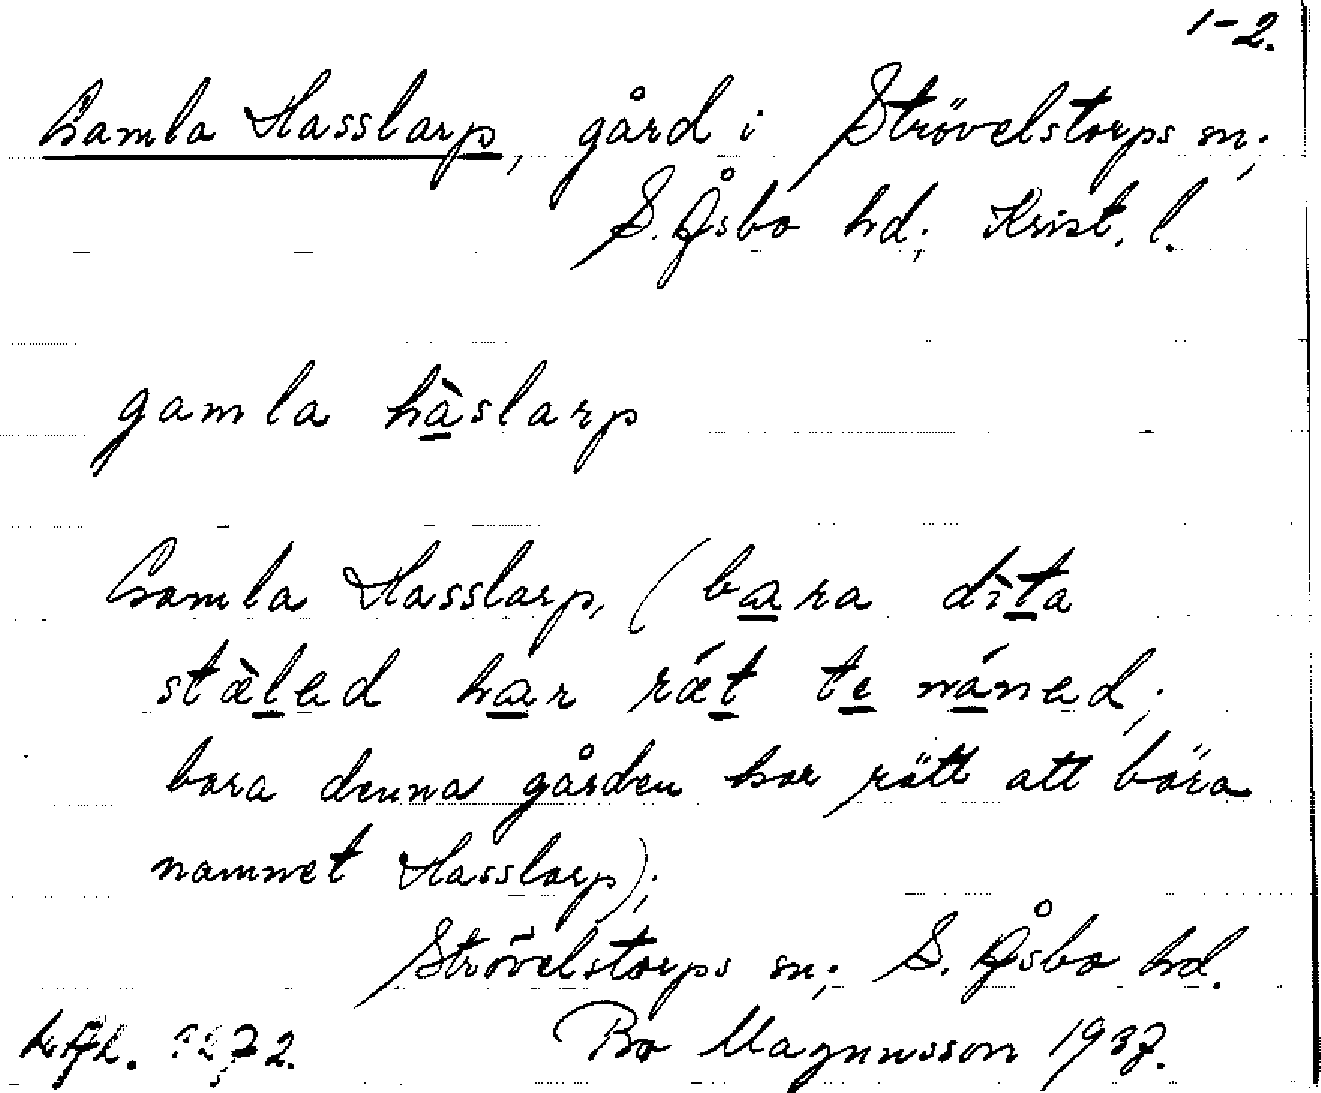 1-2.
Gamla Hasslarp, gård i Strövelstorps sn;
S. Åsbo hd; Krist. l.
gamla hàslarp
Gamla Hasslarp, (bara dìta
stæ̀led har rǽt te náned;
bara denna gården har rätt att bära
namnet Hasslarp);
Strövelstorps sn; S. Åsbo hd.
Bo Magnusson 1937.